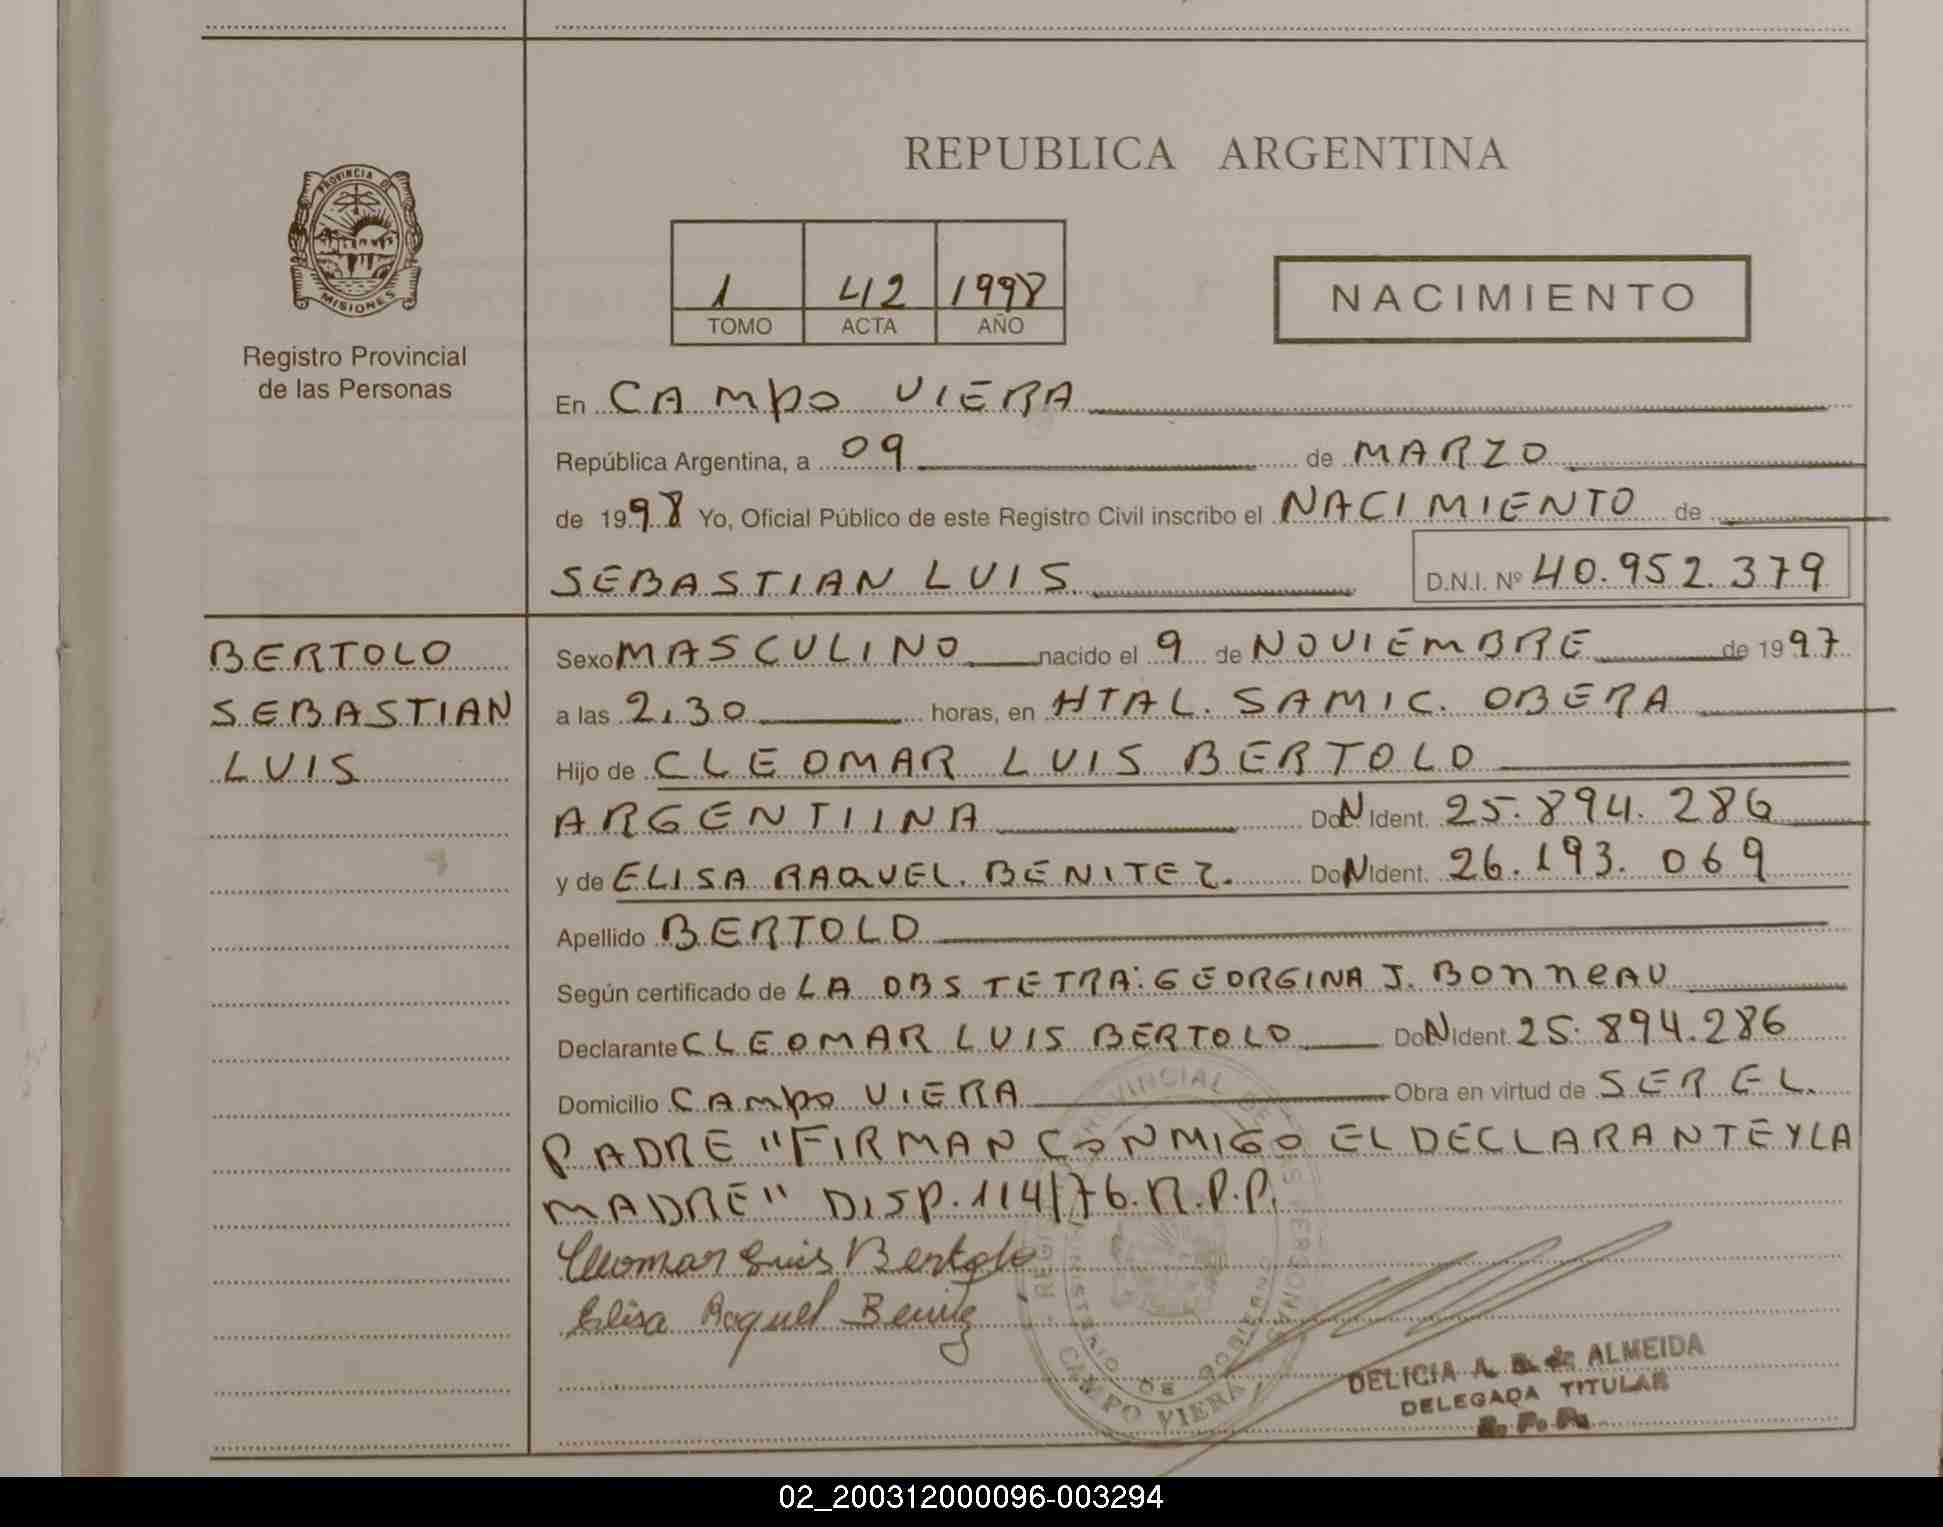 REPUBLICA ARGENTINA
PROVINCIA DE
MISIONES
Registro Provincial
de las Personas
1 42 1998
TOMO ACTA AÑO
NACIMIENTO
En CAMPO VIERA
República Argentina, a 09 de MARZO
de 1998 Yo, Oficial Público de este Registro Civil inscribo el NACIMIENTO de
SEBASTIAN LUIS D.N.I. Nº 40.952.379
BERTOLO
SEBASTIAN
LUIS
Sexo MASCULINO nacido el 9 de NOVIEMBRE de 1997
a las 2,30 horas, en HTAL. SAMIC. OBERA
Hijo de CLEOMAR LUIS BERTOLO
ARGENTIINA DocN Ident. 25.894.286
y de ELISA RAQUEL. BENITEZ. DocN Ident. 26.193.069
Apellido BERTOLO
Según certificado de LA OBSTETRA: GEORGINA J. BONNEAU
Declarante CLEOMAR LUIS BERTOLO DocN Ident. 25.894.286
Domicilio CAMPO VIERA Obra en virtud de SER EL.
PADRE "FIRMAN CONMIGO EL DECLARANTE Y LA
MADRE" DISP. 114/76. R.P.P.
Cleomar Luis Bertolo
Elisa Raquel Benitez
PROVINCIAL DE LAS PERSONAS
MINISTERIO DE GOBIERNO
CAMPO VIERA
DELICIA A. de ALMEIDA
DELEGADA TITULAR
R. P. P.
02_200312000096-003294